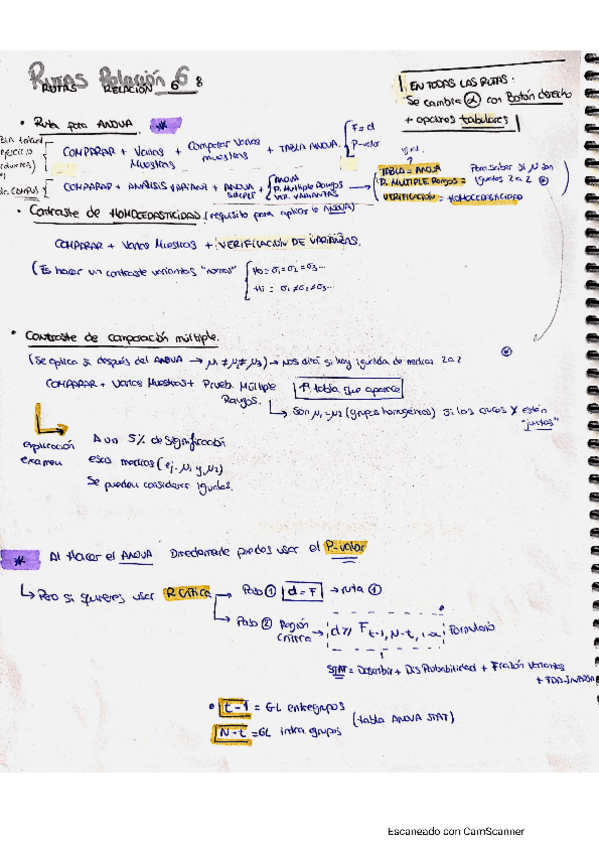 RUTAS Relación 6 8
RUTAS RELACIÓN 6
EN TODAS LAS RUTAS.
Se cambia α con Botón derecho
+ opciones tabulares
• Ruta para ANOVA. *
COMPARAR + Varias Muestras + Comparar Varias muestras + TABLA ANOVA. F = d
P-valor
COMPARAR + ANÁLISIS VARIANZA + ANOVA SIMPLE + ANOVA
P. Múltiple Rangos
VER. VARIANZAS
TABLA = ANOVA
P. MULTIPLE Rangos = Para saber si μ son iguales 2 a 2
VERIFICACIÓN = HOMOCEDASTICIDAD
• Contraste de HOMOCEDASTICIDAD. (requisito para aplicar le ANOVA)
COMPARAR + Varias Muestras + VERIFICACIÓN DE VARIANZAS.
(Es hacer un contraste varianzas "normal" H0 = σ1=σ2=σ3...
H1 = σ1≠σ2≠σ3...
• Contraste de comparación múltiple.
(Se aplica si después del ANOVA → μ1≠μ2≠μ3) → Nos dirá si hay igualdad de medias 2 a 2
COMPARAR + Varias Muestras + Prueb. Múltiple Rangos. 1ª tabla que aparece
Son μ1=μ2 (grupos homogéneos) si las cruces X están "juntas"
explicación examen
A un 5% de significación
esas medias (ej. μ1 y μ2)
Se pueden considerar iguales.
* Al Hacer el ANOVA Directamente puedes usar el P-valor
Pero si quieres usar R. Crítica → Paso 1 d = F → ruta 1
Paso 2 Región crítica → d ≥ F t-1, N-t, 1-α Formulario
STAT = Describir + Dis Probabilidad + F razón Varianzas
+ FDA-INVERSA
• t-1 = GL entregrupos
(tabla ANOVA STAT)
N-t = GL intra grupos
Escaneado con CamScanner